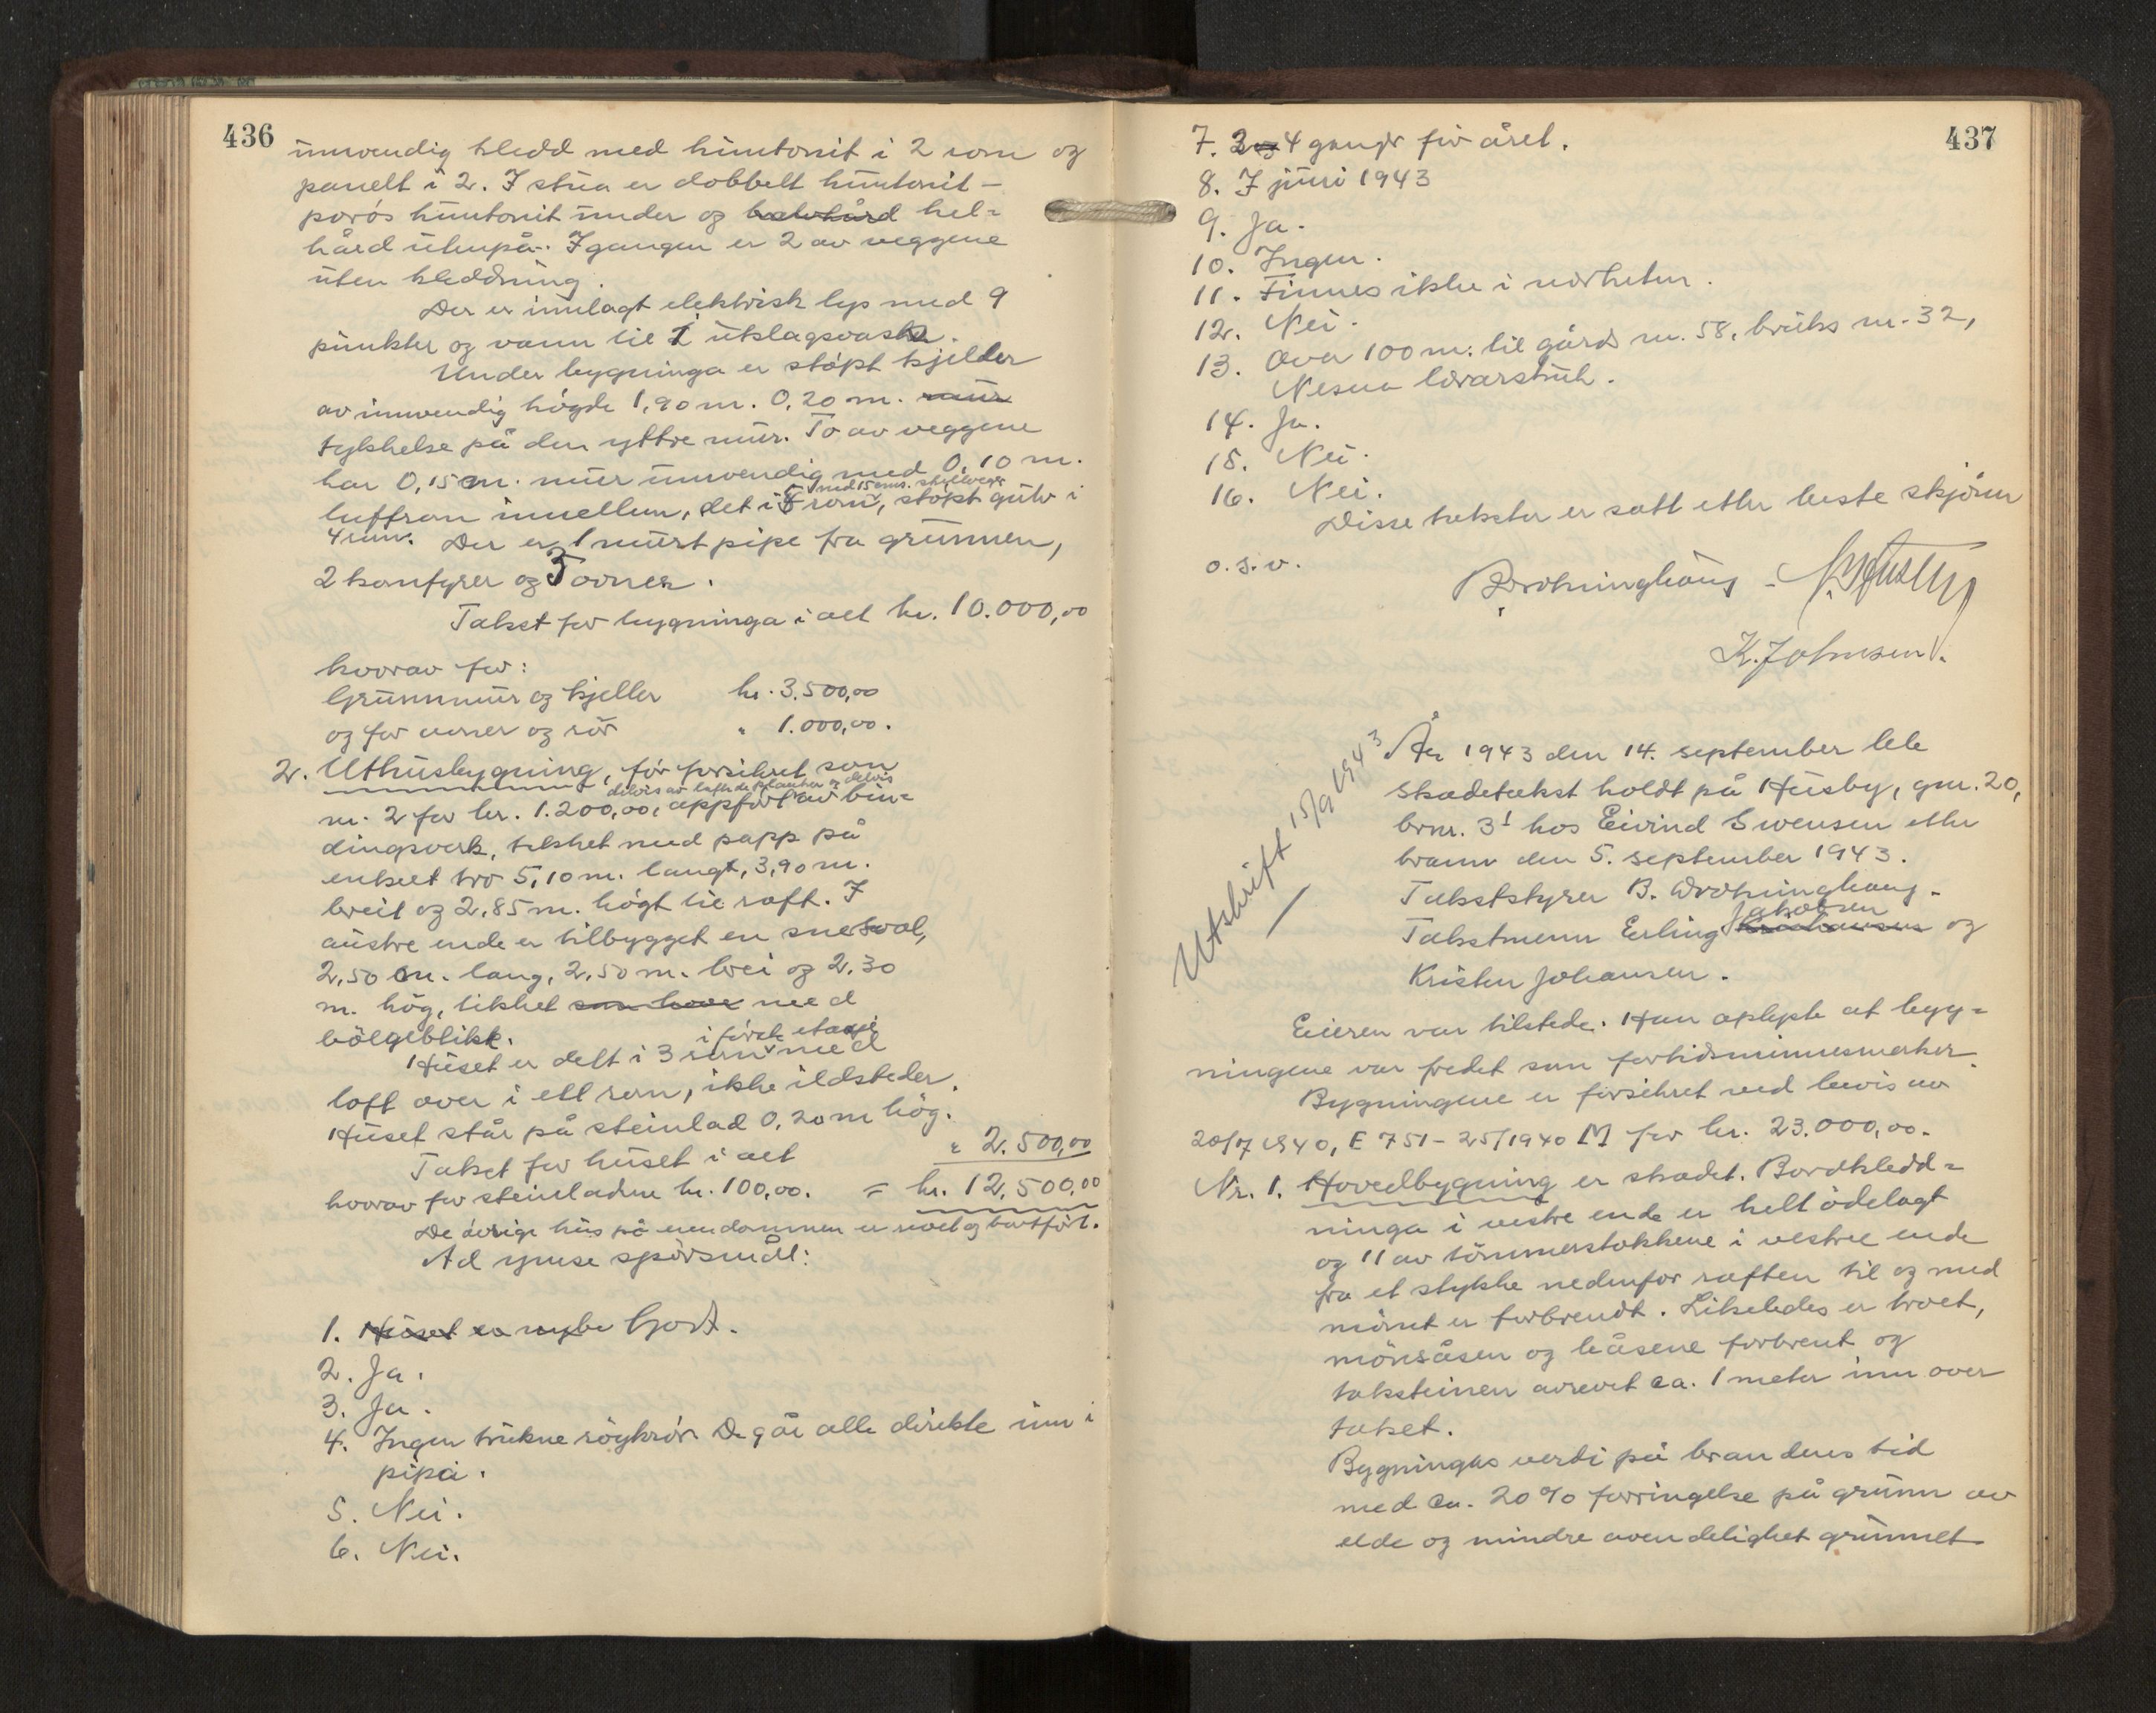 436
innvendig kledd med huntonit i 2 rom og
panelt i 2. I stua er dobbelt huntonit -
porøs huntonit under og halvhård hel=
hård utenpå. I gangen er 2 av veggene
uten kleddning.
Der er innlagt elektrisk lys med 9
punkter og vann til 1 utslagsvask.
Under bygninga er støpt kjelder
av innvendig høgde 1,90 m. 0,20 m. mur
tykkelse på den yttre mur. To av veggene
har 0,15 m. mur innvendig med 0,10 m.
med 15 cms. skillvegg
luftrom imellem, det i 5 rom, støpt gulv i
4 rum. Der er 1 murt pipe fra grunnen,
2 komfyrer og 3 ovner.
Takst for bygninga i alt kr. 10.000,00
hvorav for:
Grunnmur og kjeller kr. 3.500,00
og for ovner og rør " 1.000,00.
2. Uthusbygning, før forsikret som
delvis av laftede planker og delvis
nr. 2 for kr. 1.200,00, oppført av bin=
dingsverk, tekket med papp på
enkelt tro 5,10 m. langt, 3,90 m.
breit og 2,85 m. høgt til raft. I
austre ende er tilbygget en sneSval,
2,50 m. lang, 2,50 m. brei og 2,30
m. høg, tekket med
bölgeblikk.
i første etasje
Huset er delt i 3 rum med
loft over i ett rom, ikke ildsteder.
Huset står på steinlad 0,20 m høg.
Takst for huset i alt " 2.500,00
hvorav for steinladene kr. 100,00. = kr. 12.500,00
De øvrige hus på eiendommen er revet og bortført.
Ad ymse spørsmål:
1. Huset er nybe Godt.
2. Ja.
3. Ja.
4. Ingen trukne röykrör. De går alle direkte inn i
pipa.
5. Nei.
6. Nei.
437
7. 2 og 4 ganger for året.
8. I juni 1943
9. Ja.
10. Ingen.
11. Finnes ikke i nærheten.
12. Nei.
13. Over 100 m. til gårds nr. 58, bruks nr. 32,
Nesna lærarskule.
14. Ja.
15. Nei.
16. Nei.
Disse takster er satt etter beste skjønn
o.s.v.
K. Johnsen.
Utskrift 15/9 1943
År 1943 den 14. september ble
skadetakst holdt på Husby, gnr. 20,
brnr. 3¹ hos Eivind Svensen etter
brann den 5. september 1943.
Takststyrer B.
Jakobsen
Takstmenn Erling og
Kristen Johansen.
Eieren var tilstede. Han oplyste at byg=
ningene var fredet som fortidsminnesmerker.
Bygningene er forsikret ved bevis av
20/7 1940, E 751 - 25/1940 M for kr. 23.000,00.
Nr. 1. Hovedbygning er skadet. Bordkledd=
ninga i vestre ende er helt ödelagt
og 11 av tömmerstokkene i vestre ende
fra et stykke nedenfor raften til og med
mönet er forbrendt. Likeledes er troet,
mönsåsen og leåsene forbrent og
taksteinen avrevet ca. 1 meter inn over
taket.
Bygningens verdi på brandens tid
med ca. 20 % forringelse på grunn av
elde og mindre avendelighet grunnet